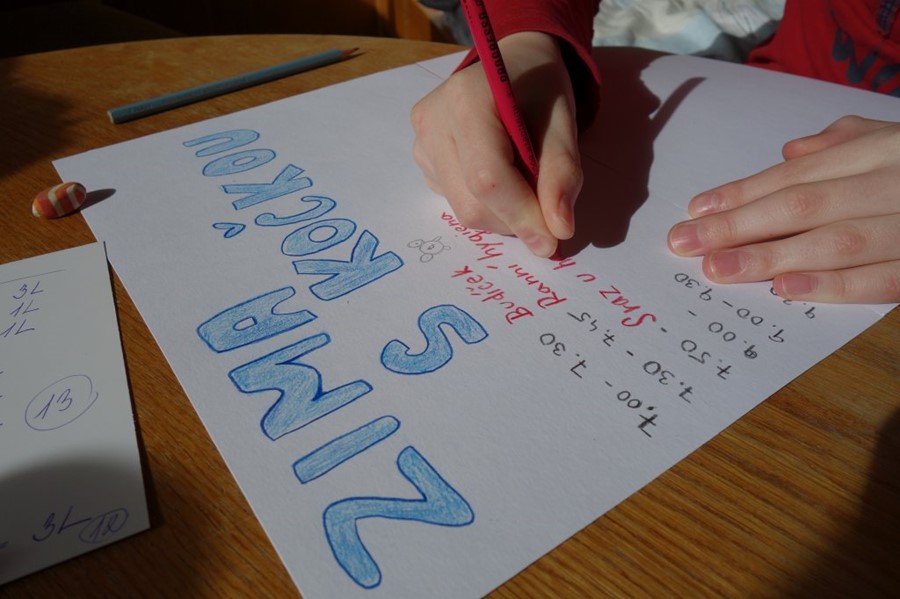 ZIMA
S KOČKOU
7.00 - 7.30 Budíček
7.30 - 7.45 Ranní hygiena
7.50 - Sraz v
9.00 - 9.30
3L
1L
1L
13
3L